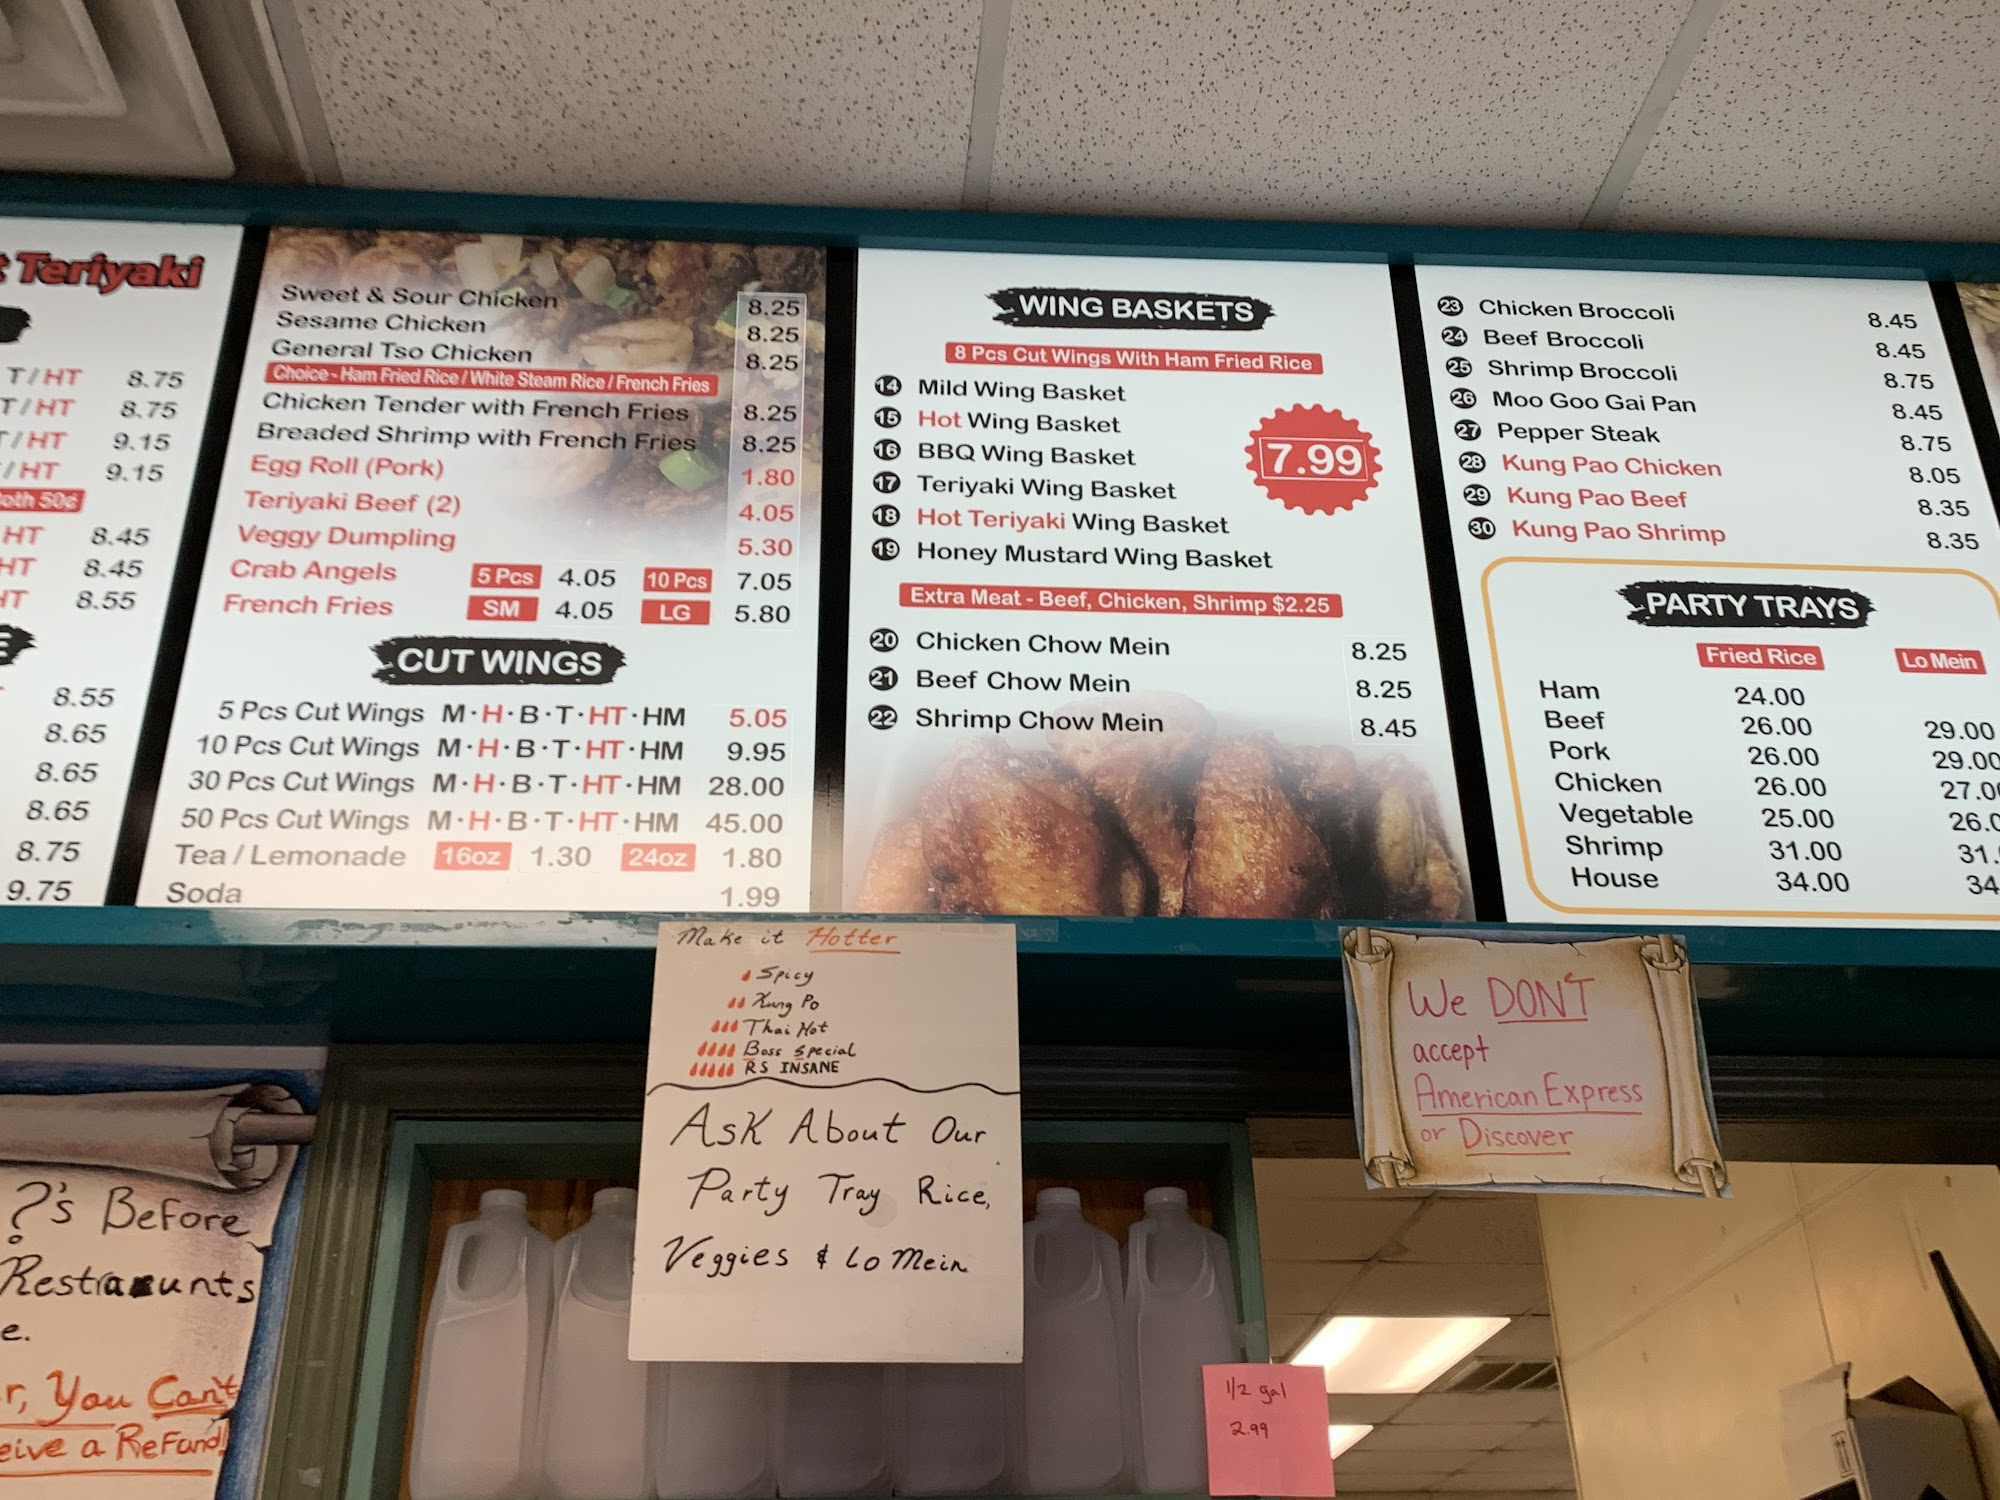 Teriyaki
T/HT 8.75
T/HT 8.75
T/HT 9.15
/HT 9.15
50¢
HT 8.45
HT 8.45
HT 8.55
8.55
8.65
8.65
8.65
8.75
9.75
Sweet & Sour Chicken 8.25
Sesame Chicken 8.25
General Tso Chicken 8.25
Choice - Ham Fried Rice / White Steam Rice / French Fries
Chicken Tender with French Fries 8.25
Breaded Shrimp with French Fries 8.25
Egg Roll (Pork) 1.80
Teriyaki Beef (2) 4.05
Veggy Dumpling 5.30
Crab Angels 5 Pcs 4.05 10 Pcs 7.05
French Fries SM 4.05 LG 5.80
CUT WINGS
5 Pcs Cut Wings M·H·B·T·HT·HM 5.05
10 Pcs Cut Wings M·H·B·T·HT·HM 9.95
30 Pcs Cut Wings M·H·B·T·HT·HM 28.00
50 Pcs Cut Wings M·H·B·T·HT·HM 45.00
Tea / Lemonade 16oz 1.30 24oz 1.80
Soda 1.99
WING BASKETS
8 Pcs Cut Wings With Ham Fried Rice
14 Mild Wing Basket
15 Hot Wing Basket
16 BBQ Wing Basket
17 Teriyaki Wing Basket
18 Hot Teriyaki Wing Basket
19 Honey Mustard Wing Basket
7.99
Extra Meat - Beef, Chicken, Shrimp $2.25
20 Chicken Chow Mein 8.25
21 Beef Chow Mein 8.25
22 Shrimp Chow Mein 8.45
23 Chicken Broccoli 8.45
24 Beef Broccoli 8.45
25 Shrimp Broccoli 8.75
26 Moo Goo Gai Pan 8.45
27 Pepper Steak 8.75
28 Kung Pao Chicken 8.05
29 Kung Pao Beef 8.35
30 Kung Pao Shrimp 8.35
PARTY TRAYS
Fried Rice Lo Mein
Ham 24.00
Beef 26.00 29.00
Pork 26.00 29.00
Chicken 26.00 27.0
Vegetable 25.00 26.0
Shrimp 31.00 31.
House 34.00 34
Make it Hotter
Spicy
Kung Po
Thai Hot
Boss Special
RS INSANE
Ask About Our
Party Tray Rice,
Veggies & Lo Mein
We DON'T
accept
American Express
or Discover
?'s Before
Restraunts
e.
r, You Can't
eive a Refund!
1/2 gal
2.99